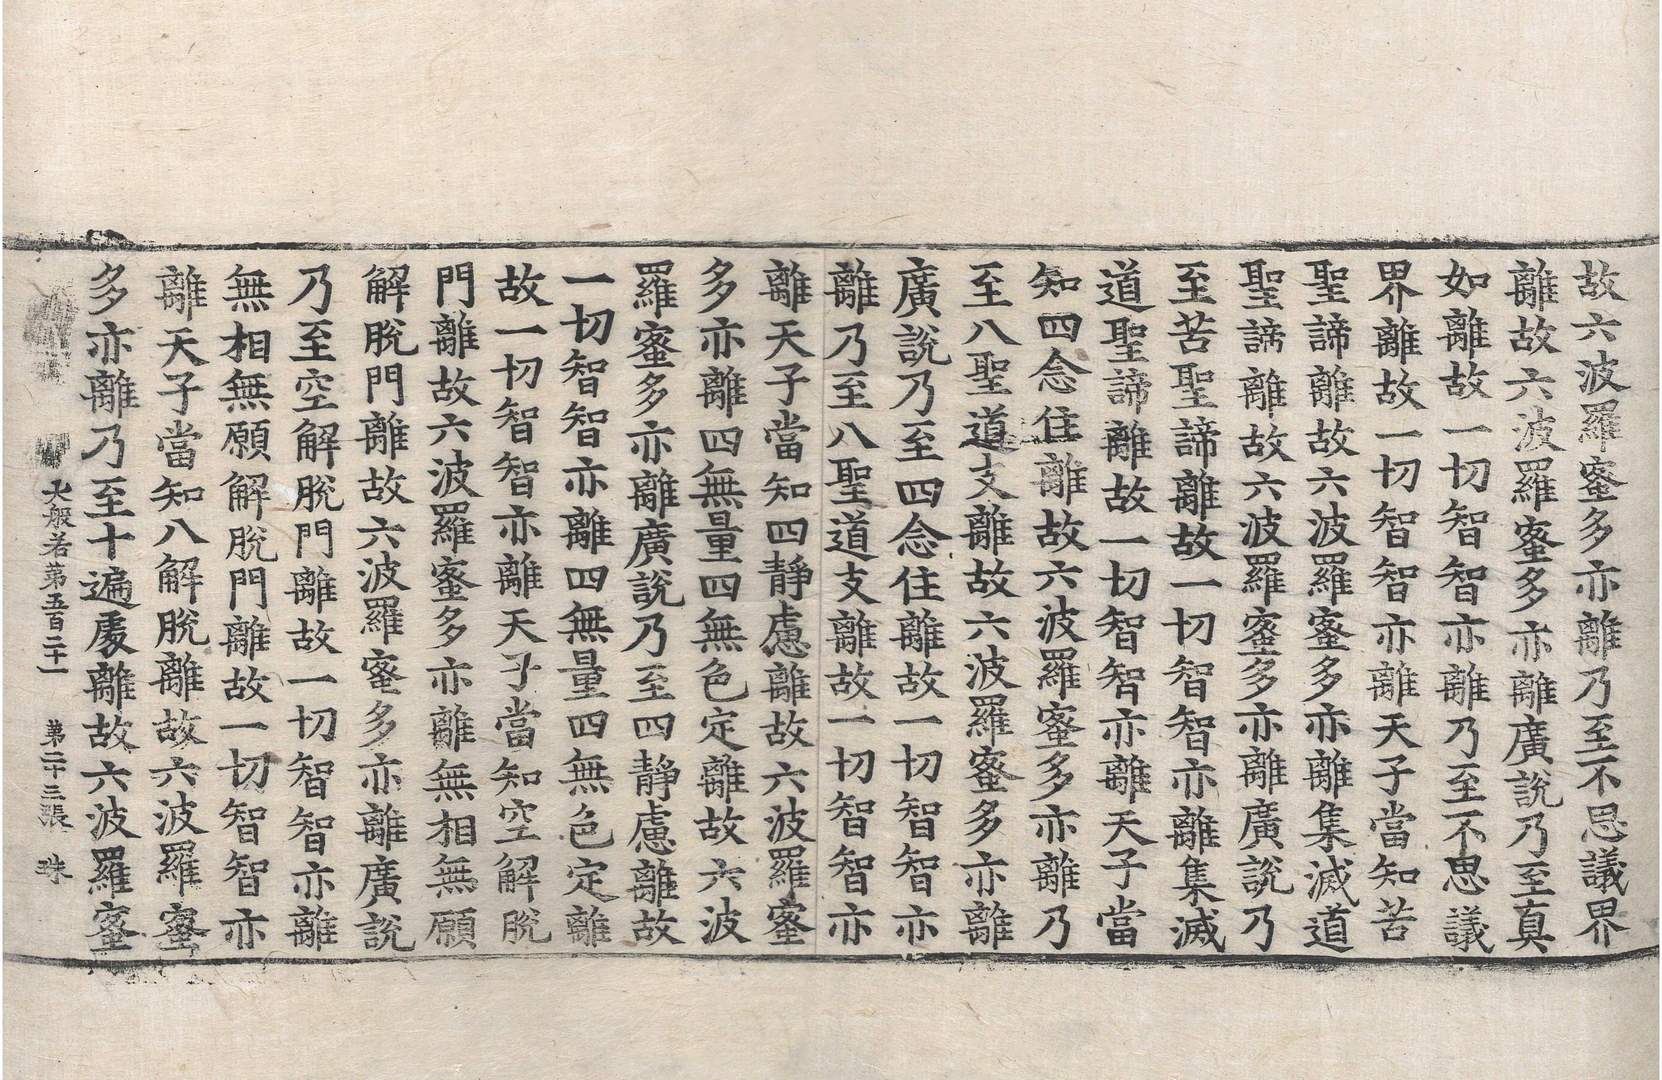 故六波羅蜜多亦離乃至不思議界
離故六波羅蜜多亦離廣說乃至真
如離故一切智智亦離乃至不思議
界離故一切智智亦離天子當知苦
聖諦離故六波羅蜜多亦離集滅道
聖諦離故六波羅蜜多亦離廣說乃
至苦聖諦離故一切智智亦離集滅
道聖諦離故一切智智亦離天子當
知四念住離故六波羅蜜多亦離乃
至八聖道支離故六波羅蜜多亦離
廣說乃至四念住離故一切智智亦
離乃至八聖道支離故一切智智亦
離天子當知四靜慮離故六波羅蜜
多亦離四無量四無色定離故六波
羅蜜多亦離廣說乃至四靜慮離故
一切智智亦離四無量四無色定離
故一切智智亦離天子當知空解脫
門離故六波羅蜜多亦離無相無願
解脫門離故六波羅蜜多亦離廣說
乃至空解脫門離故一切智智亦離
無相無願解脫門離故一切智智亦
離天子當知八解脫離故六波羅蜜
多亦離乃至十遍處離故六波羅蜜
大般若第五百二十一 第二十三張 珠